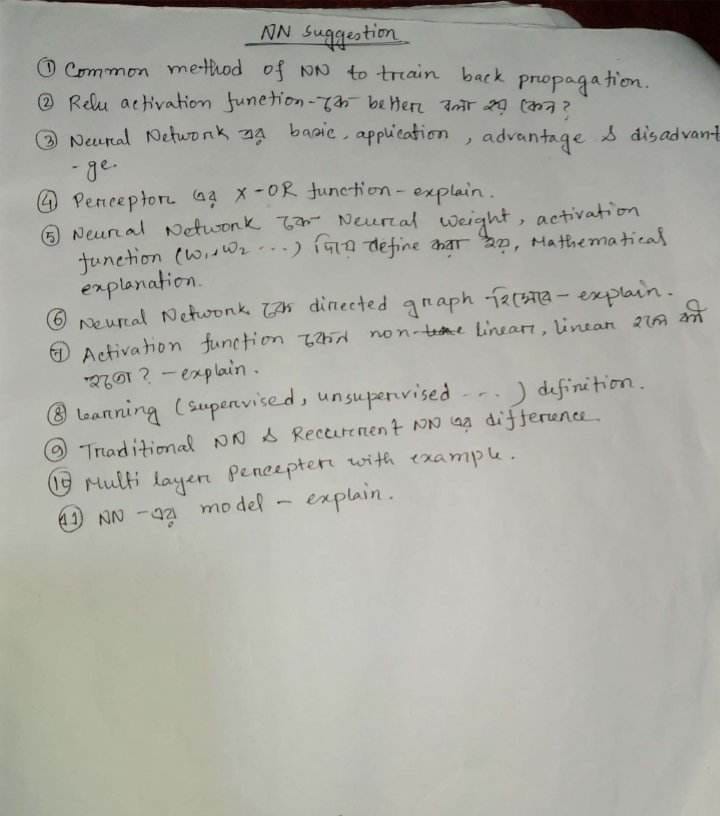 NN Suggestion
① Common method of NN to train back propagation.
② Relu activation function-কে better বলা হয় কেন?
③ Neural Network এর basic, application, advantage & disadvant
-ge.
④ Perceptor এর X-OR function - explain.
⑤ Neural Network কে Neural weight, activation
function (W₁, W₂ ...) দিয়ে define করা হয়, Mathematical
explanation.
⑥ Neural Network কে directed graph হিসেবে - explain.
⑦ Activation function কেন non- linear, linear হলে কী
হতো? - explain.
⑧ Learning (supervised, unsupervised ...) definition.
⑨ Traditional NN & Recurrent NN এর difference.
⑩ Multi layer Percepter with example.
⑪ NN -এর model - explain.